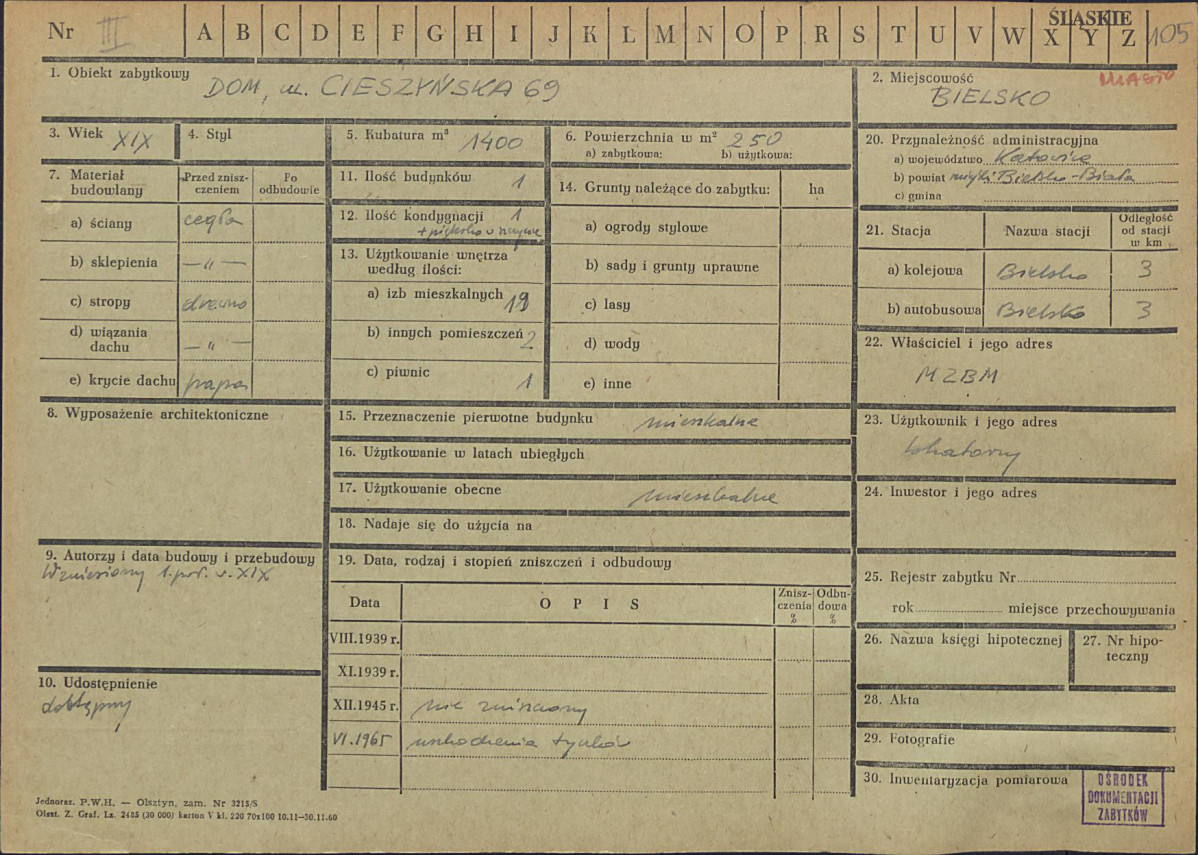 Nr III A B C D E F G H I J K L M N O P R S T U V W X Y Z ŚLĄSKIE 105
1. Obiekt zabytkowy
DOM, ul. CIESZYŃSKA 69
2. Miejscowość MIASTO
BIELSKO
3. Wiek XIX
4. Styl
5. Kubatura m³ 1400
6. Powierzchnia w m² 250
a) zabytkowa: b) użytkowa:
7. Materiał budowlany
Przed znisz-
czeniem
Po
odbudowie
a) ściany cegła
b) sklepienia —„—
c) stropy drewno
d) wiązania
dachu —„—
e) krycie dachu papa
8. Wyposażenie architektoniczne
9. Autorzy i data budowy i przebudowy
Wzniesiony 1. poł. w. XIX
10. Udostępnienie
dostępny
11. Ilość budynków 1
12. Ilość kondygnacji 1
13. Użytkowanie wnętrza
według ilości:
a) izb mieszkalnych
b) innych pomieszczeń 2
c) piwnic 1
14. Grunty należące do zabytku: ha
a) ogrody stylowe
b) sady i grunty uprawne
c) lasy
d) wody
e) inne
15. Przeznaczenie pierwotne budynku mieszkalne
16. Użytkowanie w latach ubiegłych
17. Użytkowanie obecne mieszkalne
18. Nadaje się do użycia na
19. Data, rodzaj i stopień zniszczeń i odbudowy
Data OPIS Znisz-
czenia
% Odbu-
dowa
%
VIII.1939 r.
XI.1939 r.
XII.1945 r. nie zniszczony
VI.1965 uszkodzenia tynków
20. Przynależność administracyjna
a) województwo Katowice
b) powiat miejski Bielsko-Biała
c) gmina
21. Stacja Nazwa stacji Odległość
od stacji
w km
a) kolejowa Bielsko 3
b) autobusowa Bielsko 3
22. Właściciel i jego adres
MZBM
23. Użytkownik i jego adres
lokatorzy
24. Inwestor i jego adres
25. Rejestr zabytku Nr
rok miejsce przechowywania
26. Nazwa księgi hipotecznej
27. Nr hipo-
teczny
28. Akta
29. Fotografie
30. Inwentaryzacja pomiarowa
OŚRODEK
DOKUMENTACJI
ZABYTKÓW
Jednoraz. P.W.H. — Olsztyn, zam. Nr 3215/S
Olszt. Z. Graf. Lz. 2485 (30 000) karton V kl. 220 70x100 10.11—30.11.60